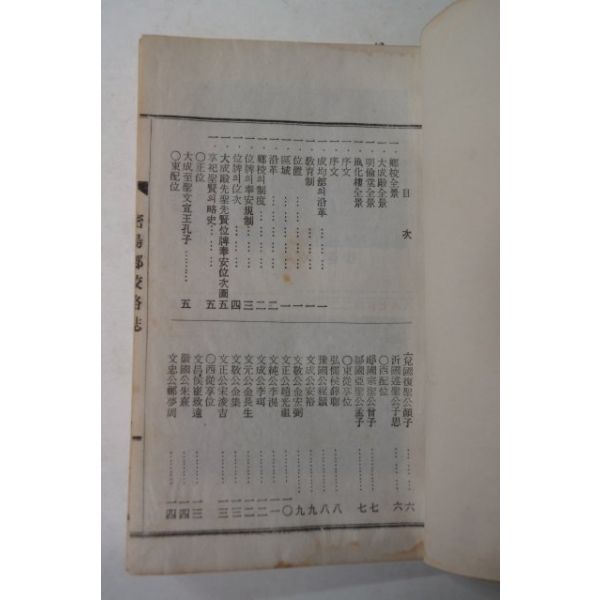 目次
一. 鄕校全景
一. 大成殿全景
一. 明倫堂全景
一. 風化樓全景
一. 序文
一. 序文
一. 成均館의沿革……一
一. 敎育制……一
一. 位置……一
一. 區域……一
一. 沿革……二
一. 鄕校의制度……二
一. 位牌의奉安規制……三
一. 位牌의位次……四
一. 大成殿先聖先賢位牌奉安位次圖……五
一. 享祀聖賢의略史……五
○正位
大成至聖文宣王孔子……五
○東配位
兗國復聖公顔子……六
沂國述聖公子思……六
○西配位
郕國宗聖公曾子……七
鄒國亞聖公孟子……七
○東從享位
弘儒侯薛聰……八
豫國公程顥……八
文成公安裕……九
文敬公金宏弼……九
文正公趙光祖……一〇
文純公李滉……一一
文成公李珥……一二
文元公金長生……一二
文敬公金集……一三
文正公宋浚吉……一三
○西從享位
文昌侯崔致遠……一三
徽國公朱熹……一四
文忠公鄭夢周……一四
密陽鄕校略誌